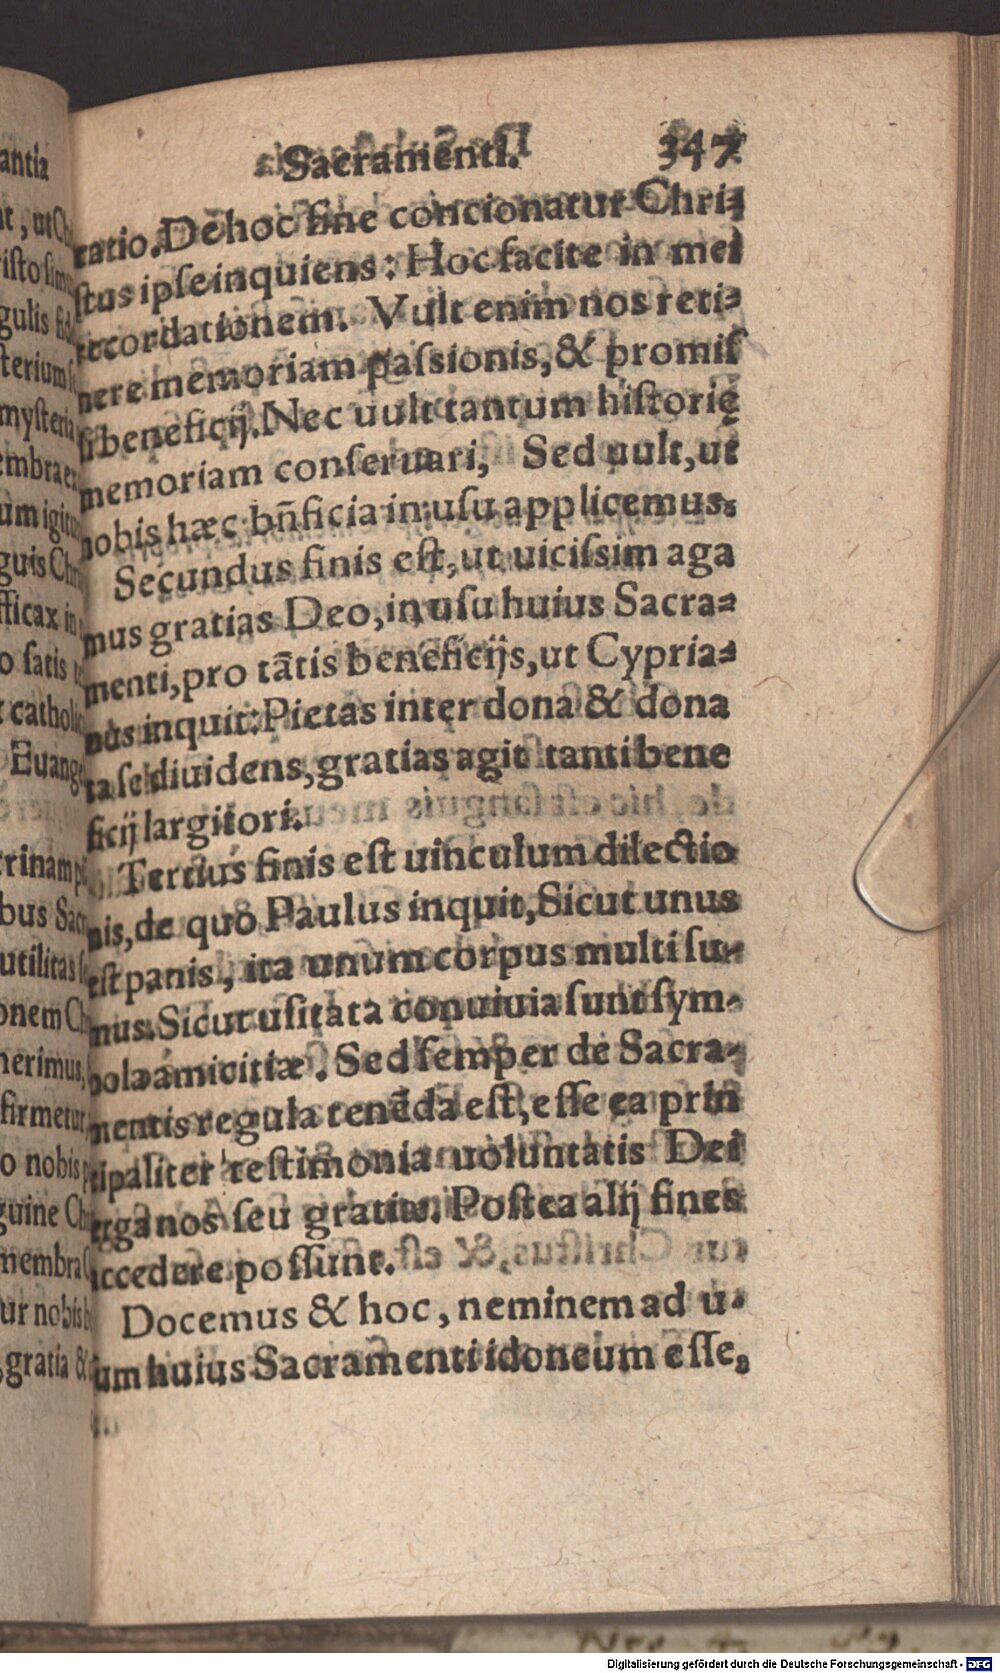 Sacramenti. 347
ratio. De hoc fine concionatur Chri⸗
ſtus ipſe inquiens: Hoc facite in mei
recordationem. Vult enim nos reti⸗
nere memoriam paſsionis, & promiſ
ſi beneficij. Nec uult tantum hiſtorię
memoriam conſeruari, Sed uult, ut
nobis hæc bñficia in uſu applicemus.
Secundus finis eſt, ut uiciſsim aga
mus gratias Deo, in uſu huius Sacra⸗
menti, pro tātis beneficijs, ut Cypria⸗
nus inquit: Pietas inter dona & dona
ta ſe diuidens, gratias agit tanti bene
ficij largitori.
Tertius finis eſt uinculum dilectio
nis, de quo Paulus inquit, Sicut unus
eſt panis, ita unum corpus multi ſu⸗
mus. Sicut uſitata conuiuia ſunt ſym⸗
bola amicitiæ. Sed ſemper de Sacra⸗
mentis regula tenēda eſt, eſſe ea prin
cipaliter teſtimonia uoluntatis Dei
erga nos ſeu gratiæ. Poſtea alij fines
accedere poſſunt.
Docemus & hoc, neminem ad u⸗
ſum huius Sacramenti idoneum eſſe,
antia
ut Ch
iſto ſim
gulis fid
terium
myſteria
embra
um igitur
guis Chr
fficax in
o ſatis
catholi
Euange
rinam
bus Sacr
utilitas
onem Ch
nerimus,
firmetur,
o nobis
guine Ch
membra
ur nobis
gratia &
Digitalisierung gefördert durch die Deutsche Forschungsgemeinschaft - DFG